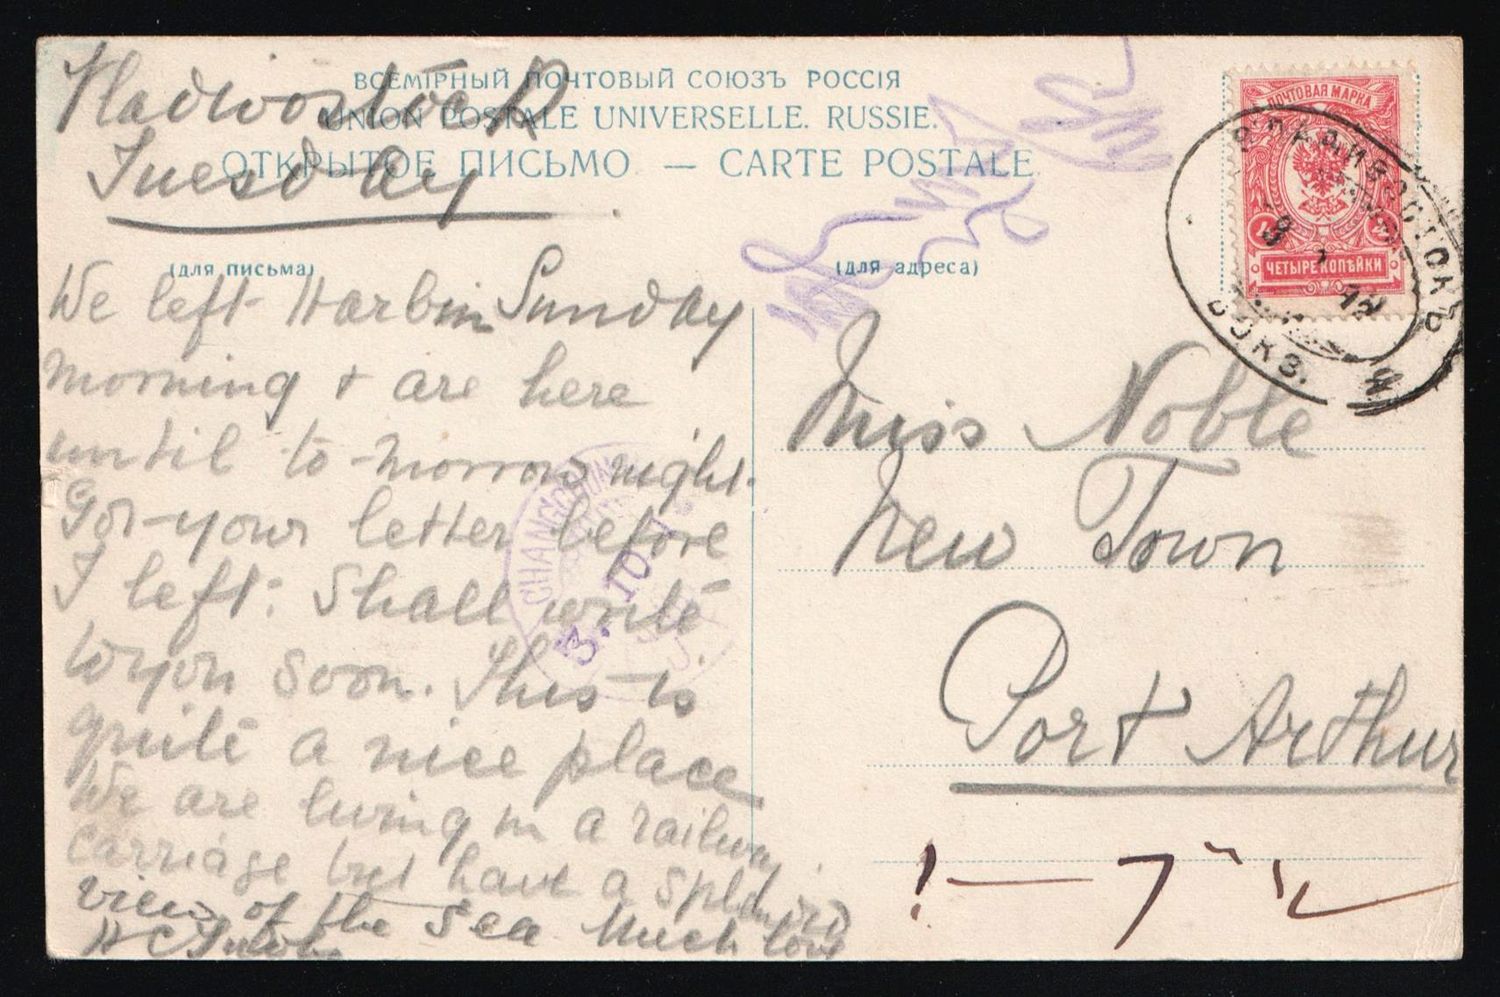 ВСЕМІРНЫЙ ПОЧТОВЫЙ СОЮЗЪ РОССІЯ
UNION POSTALE UNIVERSELLE. RUSSIE.
ОТКРЫТОЕ ПИСЬМО — CARTE POSTALE
Vladivostock
Tuesday
(для письма)
(для адреса)
We left Harbin Sunday
morning + are here
until to-morrow night.
Got your letter before
I left: Shall write
to you soon. This is
quite a nice place
We are living in a railway
carriage but have a splendid
view of the Sea Much love
H C
ПОЧТОВАЯ МАРКА
4 4
ЧЕТЫРЕ КОПѢЙКИ
ВЛАДИВОСТОКЪ
ВОКЗ.
CHANGCHUN
3. 10.
Miss Noble
New Town
Port Arthur
アール